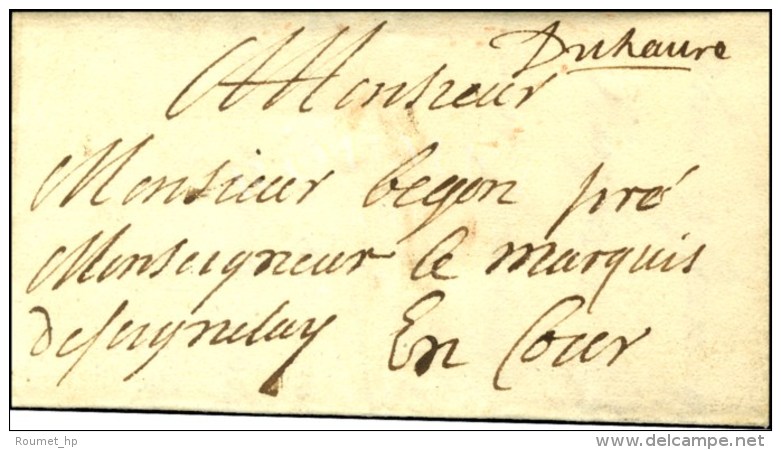 Duhaure
A Monsieur
Monsieur begon pré
Monseigneur le marquis
de seignelay En Cour
Roumet_hp
www.delcampe.net